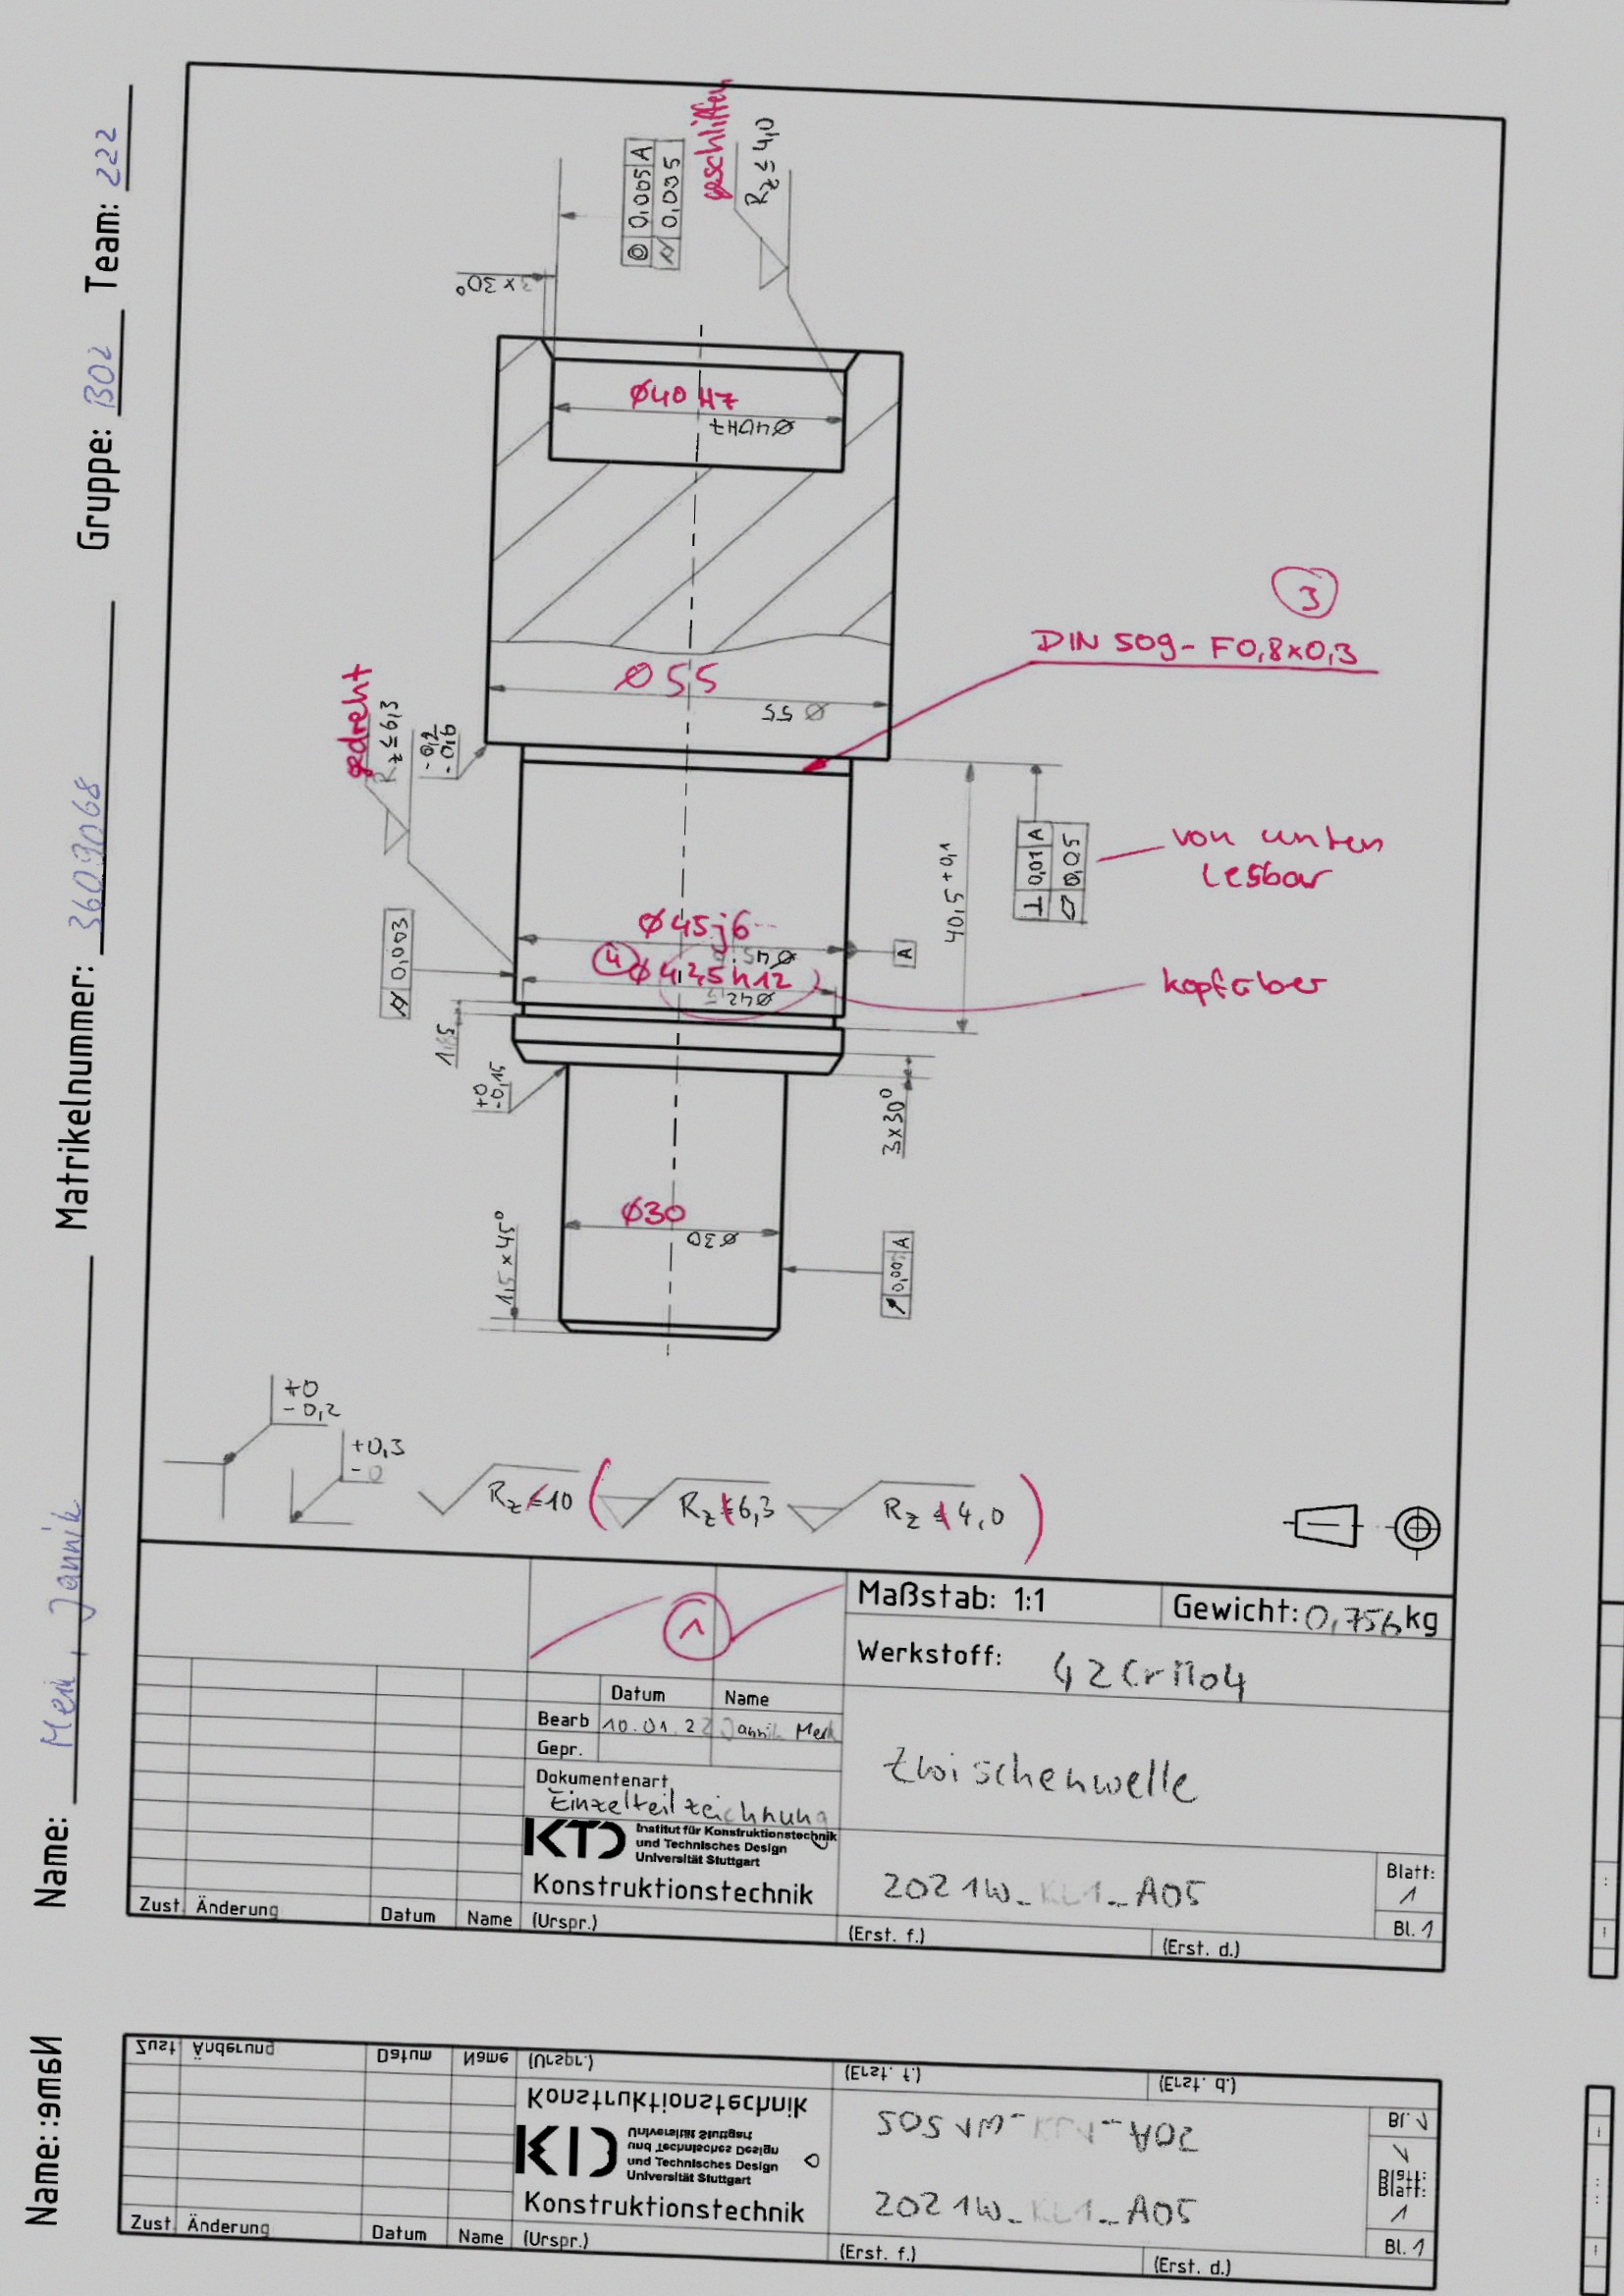 Name: Jannik Matrikelnummer: 3609068 Gruppe: B02 Team: 222
geschliffen
◎ 0,005 A
⌭ 0,005
Rz ≤ 4,0
3 x 30°
Ø40 H7
Ø40H7
3
DIN 509 - F0,8x0,3
Ø55
Ø 55
gedreht
Rz ≤ 6,3
-0,2
-0,6
40,5 +0,1
⊥ 0,01 A
⏥ 0,05
von unten
lesbar
Ø45j6
A
⌭ 0,003
4 Ø42,5h12
kopfüber
+0
-0,15
3x30°
Ø30
Ø30
1,5 x 45°
+0
-0,2
+0,3
-0
Rz ≤ 10 ( Rz ≤ 6,3 Rz ≤ 4,0 )
1
Maßstab: 1:1
Gewicht: 0,756 kg
Werkstoff: 42CrMo4
Datum Name
Bearb 10.01.22 Jannik
Gepr.
Zwischenwelle
Dokumentenart
Einzelteilzeichnung
KTD Institut für Konstruktionstechnik
und Technisches Design
Universität Stuttgart
Konstruktionstechnik
2021W_KL1_A05
Blatt:
1
Bl. 1
Zust. Änderung Datum Name (Urspr.) (Erst. f.) (Erst. d.)
Name:
Zust Änderung Datum Name (Urspr.) (Erst. f.) (Erst. d.)
Konstruktionstechnik
2021W_KL1_A05
Bl. 1
Universität Stuttgart
und Technisches Design
und Technisches Design
Universität Stuttgart
1
Blatt:
Blatt:
1
Konstruktionstechnik
2021W_KL1_A05
Bl. 1
Zust. Änderung Datum Name (Urspr.) (Erst. f.) (Erst. d.)